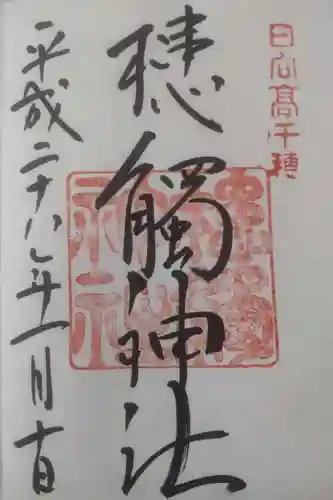 日向高千穂
穂觸神社
平成二十八年十一月十日